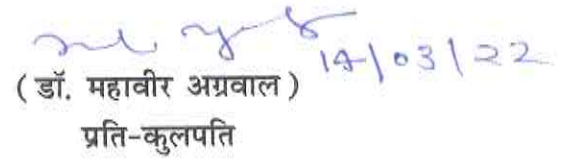 14/03/22
( डॉ. महावीर अग्रवाल )
प्रति-कुलपति